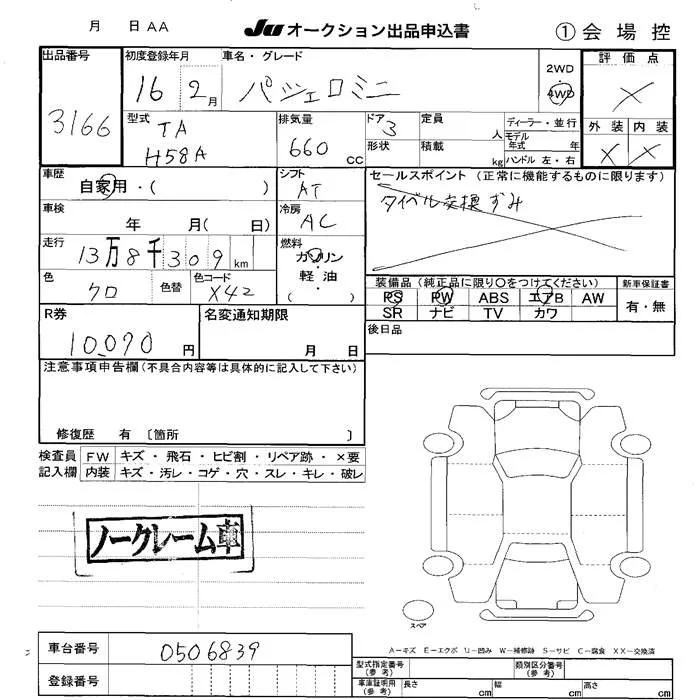 月 日AA
JU オークション出品申込書
①会場控
出品番号
3166
初度登録年月
16 2月
車名・グレード
パジェロミニ
2WD
・
4WD
評価点
×
外装 内装
× ×
型式
TA
H58A
排気量
660 cc
ドア
3
形状
定員
人
積載
kg
ディーラー・並行
モデル
年式 年
ハンドル 左・右
車歴
自家用・( )
シフト
AT
セールスポイント(正常に機能するものに限ります)
タイベル交換ずみ
車検
年 月( 日)
冷房
AC
走行
13万8千309km
燃料
ガソリン
・
軽油
( )
色
クロ
色替
色コード
X42
装備品(純正品に限り○をつけてください)
PS PW ABS エアB AW
SR ナビ TV カワ
新車保証書
有・無
R券
10,070円
名変通知期限
月 日
後日品
注意事項申告欄(不具合内容等は具体的に記入して下さい)
修復歴 有 〔箇所 〕
検査員
記入欄
FW キズ・飛石・ヒビ割・リペア跡・×要
内装 キズ・汚レ・コゲ・穴・スレ・キレ・破レ
ノークレーム車
スペア
A-キズ E-エクボ U-凹み W-補修跡 S-サビ C-腐食 XX-交換済
車台番号
0506839
登録番号
型式指定番号
(参考)
類別区分番号
(参考)
車庫証明用
(参考)
長さ cm 幅 cm 高さ cm